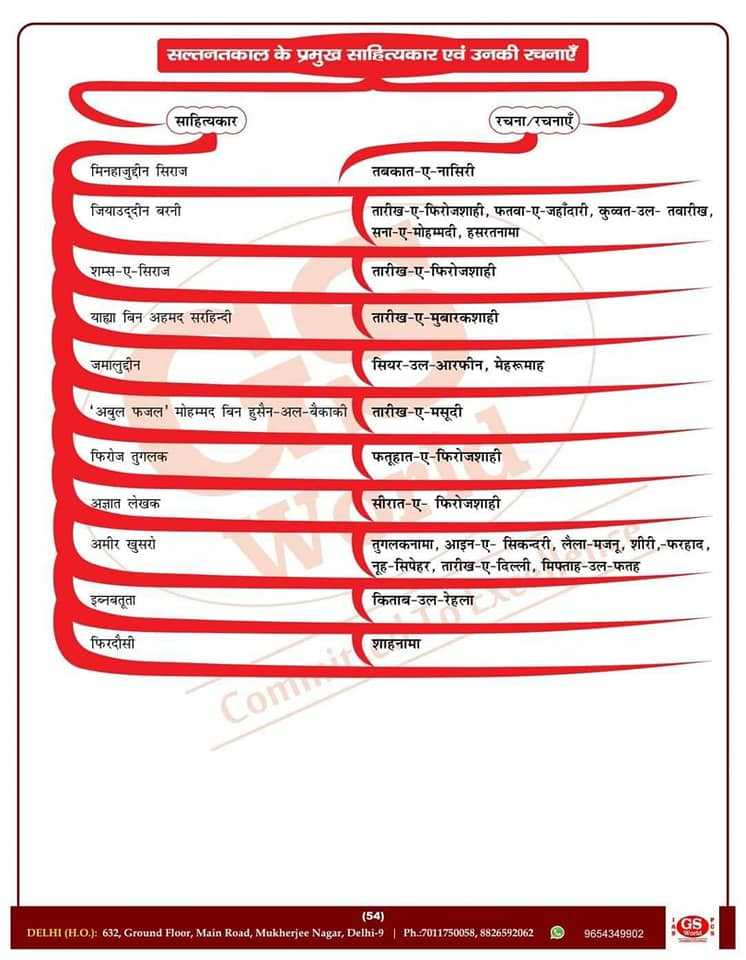 सल्तनतकाल के प्रमुख साहित्यकार एवं उनकी रचनाएँ
साहित्यकार
रचना/रचनाएँ
मिनहाजुद्दीन सिराज
तबकात-ए-नासिरी
जियाउद्दीन बरनी
तारीख-ए-फिरोजशाही, फतवा-ए-जहाँदारी, कुव्वत-उल- तवारीख,
सना-ए-मोहम्मदी, हसरतनामा
शम्स-ए-सिराज
तारीख-ए-फिरोजशाही
याह्या बिन अहमद सरहिन्दी
तारीख-ए-मुबारकशाही
जमालुद्दीन
सियर-उल-आरफीन, मेहरूमाह
'अबुल फजल' मोहम्मद बिन हुसैन-अल-बैकाकी
तारीख-ए-मसूदी
फिरोज तुगलक
फतूहात-ए-फिरोजशाही
अज्ञात लेखक
सीरात-ए- फिरोजशाही
अमीर खुसरो
तुगलकनामा, आइन-ए- सिकन्दरी, लैला-मजनू, शीरी,-फरहाद,
नूह-सिपेहर, तारीख-ए-दिल्ली, मिफ्ताह-उल-फतह
इब्नबतूता
किताब-उल-रेहला
फिरदौसी
शाहनामा
GS
World
Committed To Excellence
(54)
DELHI (H.O.): 632, Ground Floor, Main Road, Mukherjee Nagar, Delhi-9 | Ph.:7011750058, 8826592062 9654349902
IAS
GS
World
PCS